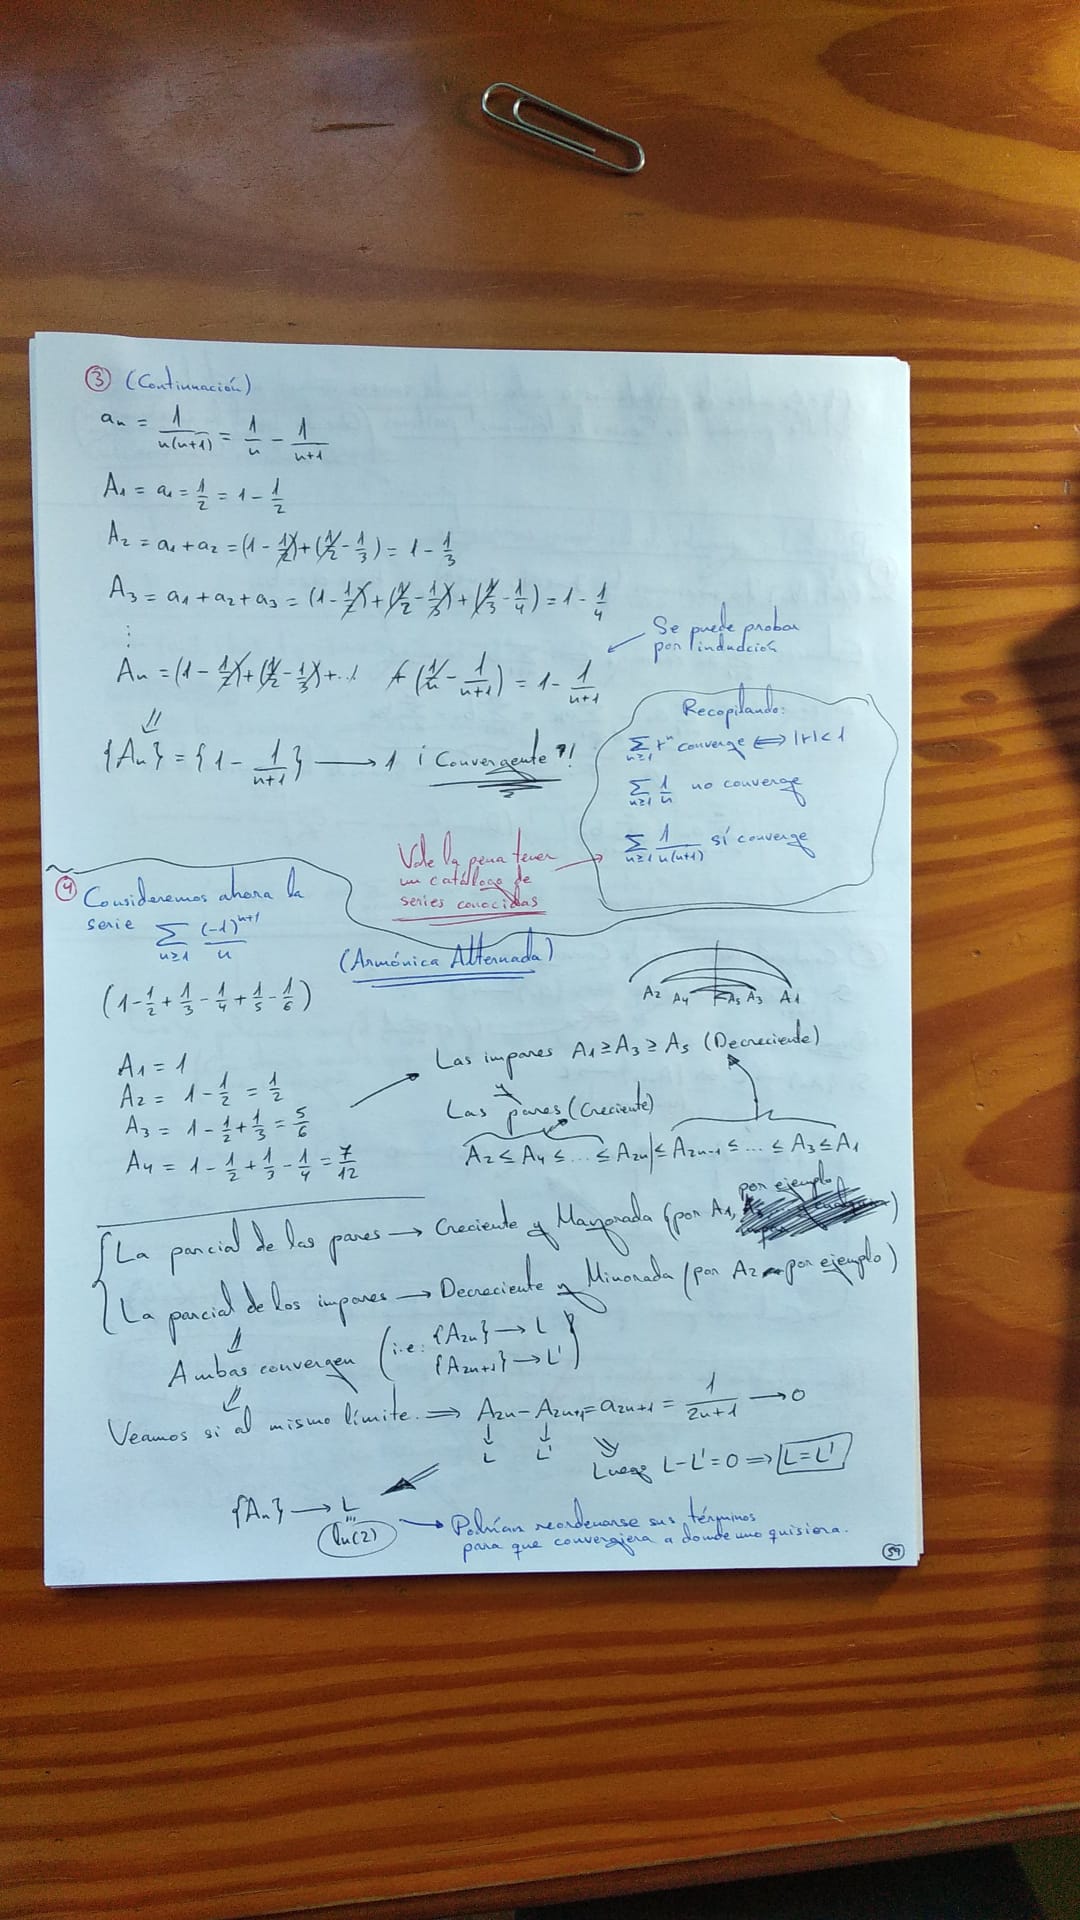 ③ (Continuación)
an = 1/(n(n+1)) = 1/n - 1/(n+1)
A1 = a1 = 1/2 = 1 - 1/2
A2 = a1 + a2 = (1 - 1/2) + (1/2 - 1/3) = 1 - 1/3
A3 = a1 + a2 + a3 = (1 - 1/2) + (1/2 - 1/3) + (1/3 - 1/4) = 1 - 1/4
⋮
Se puede probar
por inducción
An = (1 - 1/2) + (1/2 - 1/3) + ... + (1/n - 1/(n+1)) = 1 - 1/(n+1)
⇓
{An} = {1 - 1/(n+1)} → 1 ¡Convergente!
Recopilando:
∑n≥1 r^n converge ⟺ |r| < 1
∑n≥1 1/n no converge
∑n≥1 1/(n(n+1)) sí converge
Vale la pena tener
un catálogo de
series conocidas
④ Consideremos ahora la
serie ∑n≥1 (-1)^(n+1)/n
(Armónica Alternada)
(1 - 1/2 + 1/3 - 1/4 + 1/5 - 1/6)
A2 A4 A5 A3 A1
A1 = 1
A2 = 1 - 1/2 = 1/2
A3 = 1 - 1/2 + 1/3 = 5/6
A4 = 1 - 1/2 + 1/3 - 1/4 = 7/12
Las impares A1 ≥ A3 ≥ A5 (Decreciente)
y
Las pares (Creciente)
A2 ≤ A4 ≤ ... ≤ A2n ≤ A2n-1 ≤ ... ≤ A3 ≤ A1
La parcial de las pares → Creciente y Mayorada (por A1, por ejemplo)
La parcial de los impares → Decreciente y Minorada (por A2 por ejemplo)
⇓
Ambas convergen (i.e: {A2n} → L
{A2n+1} → L')
⇓
Veamos si al mismo límite. ⇒ A2n - A2n+1 = a2n+1 = 1/(2n+1) → 0
↓ ↓
L L'
Luego L - L' = 0 ⇒ L = L'
{An} → L
ln(2)
→ Podrían reordenarse sus términos
para que convergiera a donde uno quisiera.
59